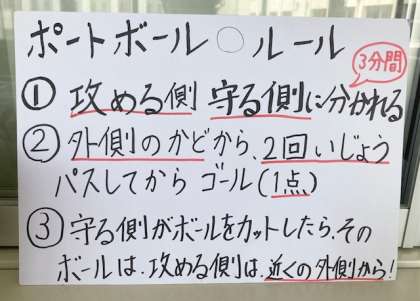 ポートボール○ルール
3分間
① 攻める側 守る側に分かれる
② 外側のかどから、2回いじょう
パスしてから ゴール(1点)
③ 守る側がボールをカットしたら、その
ボールは、攻める側は、近くの外側から!